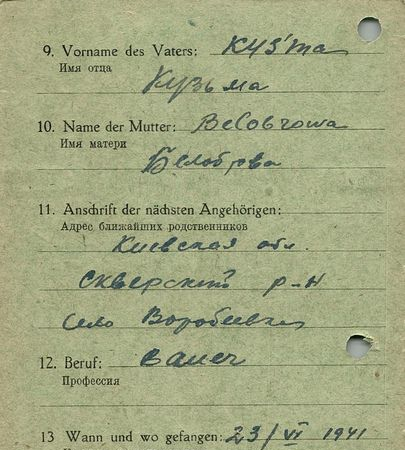 9. Vorname des Vaters: Kуз'ma
Имя отца
Кузьма
10. Name der Mutter:
Имя матери
Белоброва
11. Anschrift der nächsten Angehörigen:
Адрес ближайших родственников
Киевская обл.
Сквирский р-н
село
12. Beruf: Bauer
Профессия
13 Wann und wo gefangen: 23/VI 1941